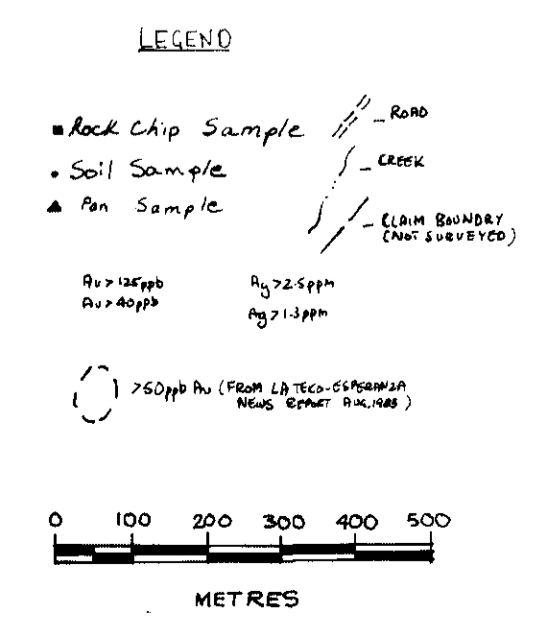 LEGEND
Rock Chip Sample
Soil Sample
Pan Sample
ROAD
CREEK
CLAIM BOUNDRY
(NOT SURVEYED)
Au > 125ppb
Au > 40ppb
Ag > 2.5ppm
Ag > 1.3ppm
>50ppb Au (FROM LATECO-ESPERANZA
NEWS REPORT AUG, 1983)
0 100 200 300 400 500
METRES